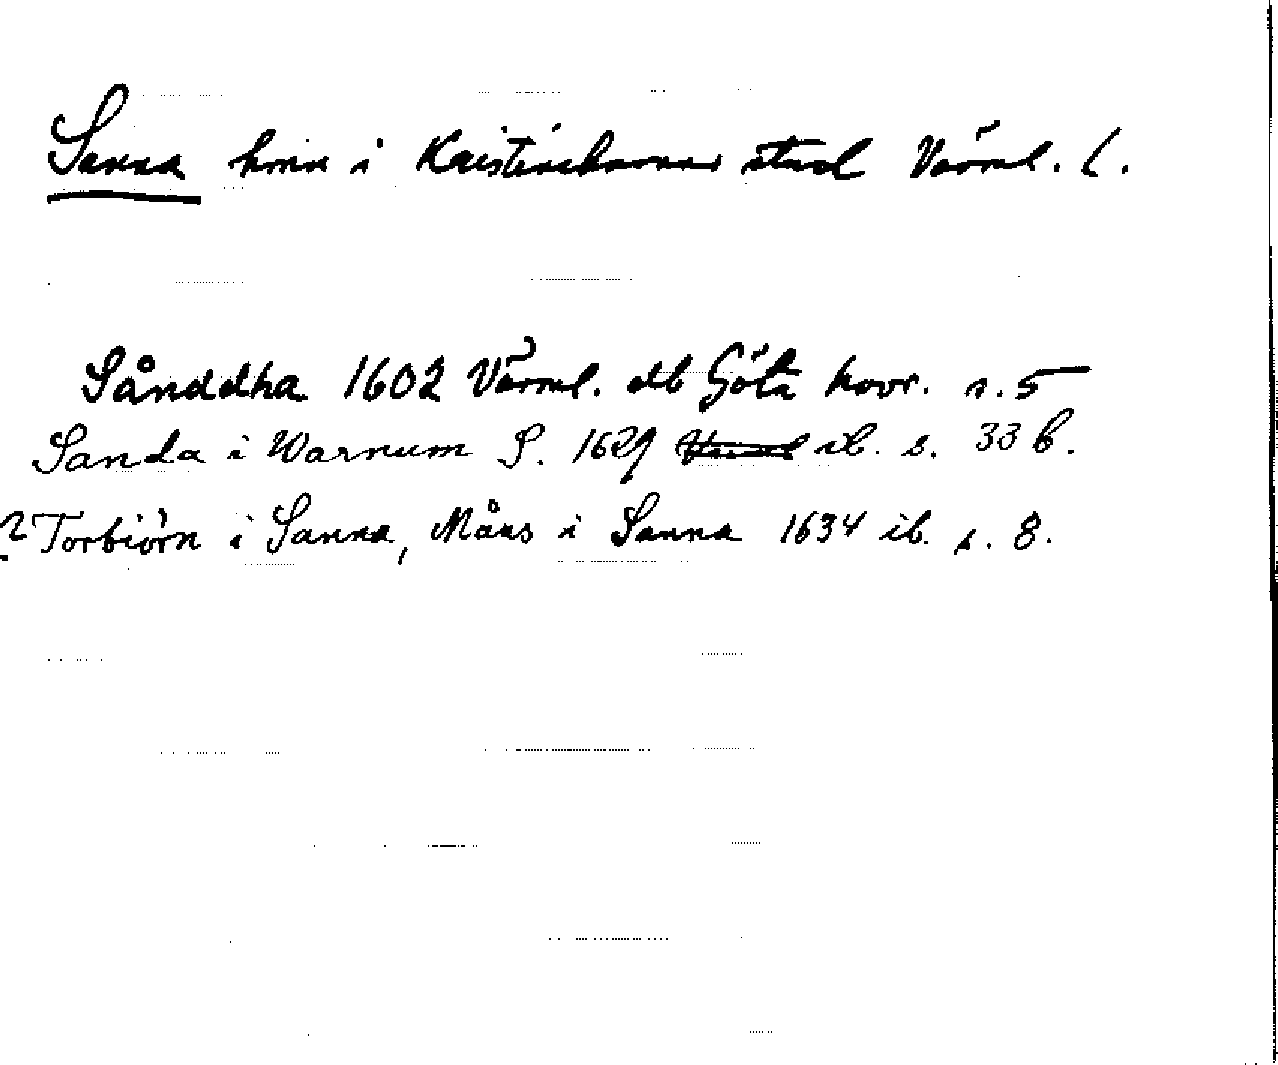 Sanna hmn i Kristinehamns stad Värml. l.
Sånddha 1602 Värml. db Göta hovr. s. 5
Sanda i Warnum S. 1629 ib. s. 33 b.
? Torbiörn i Sanna, Måns i Sanna 1634 ib. s. 8.